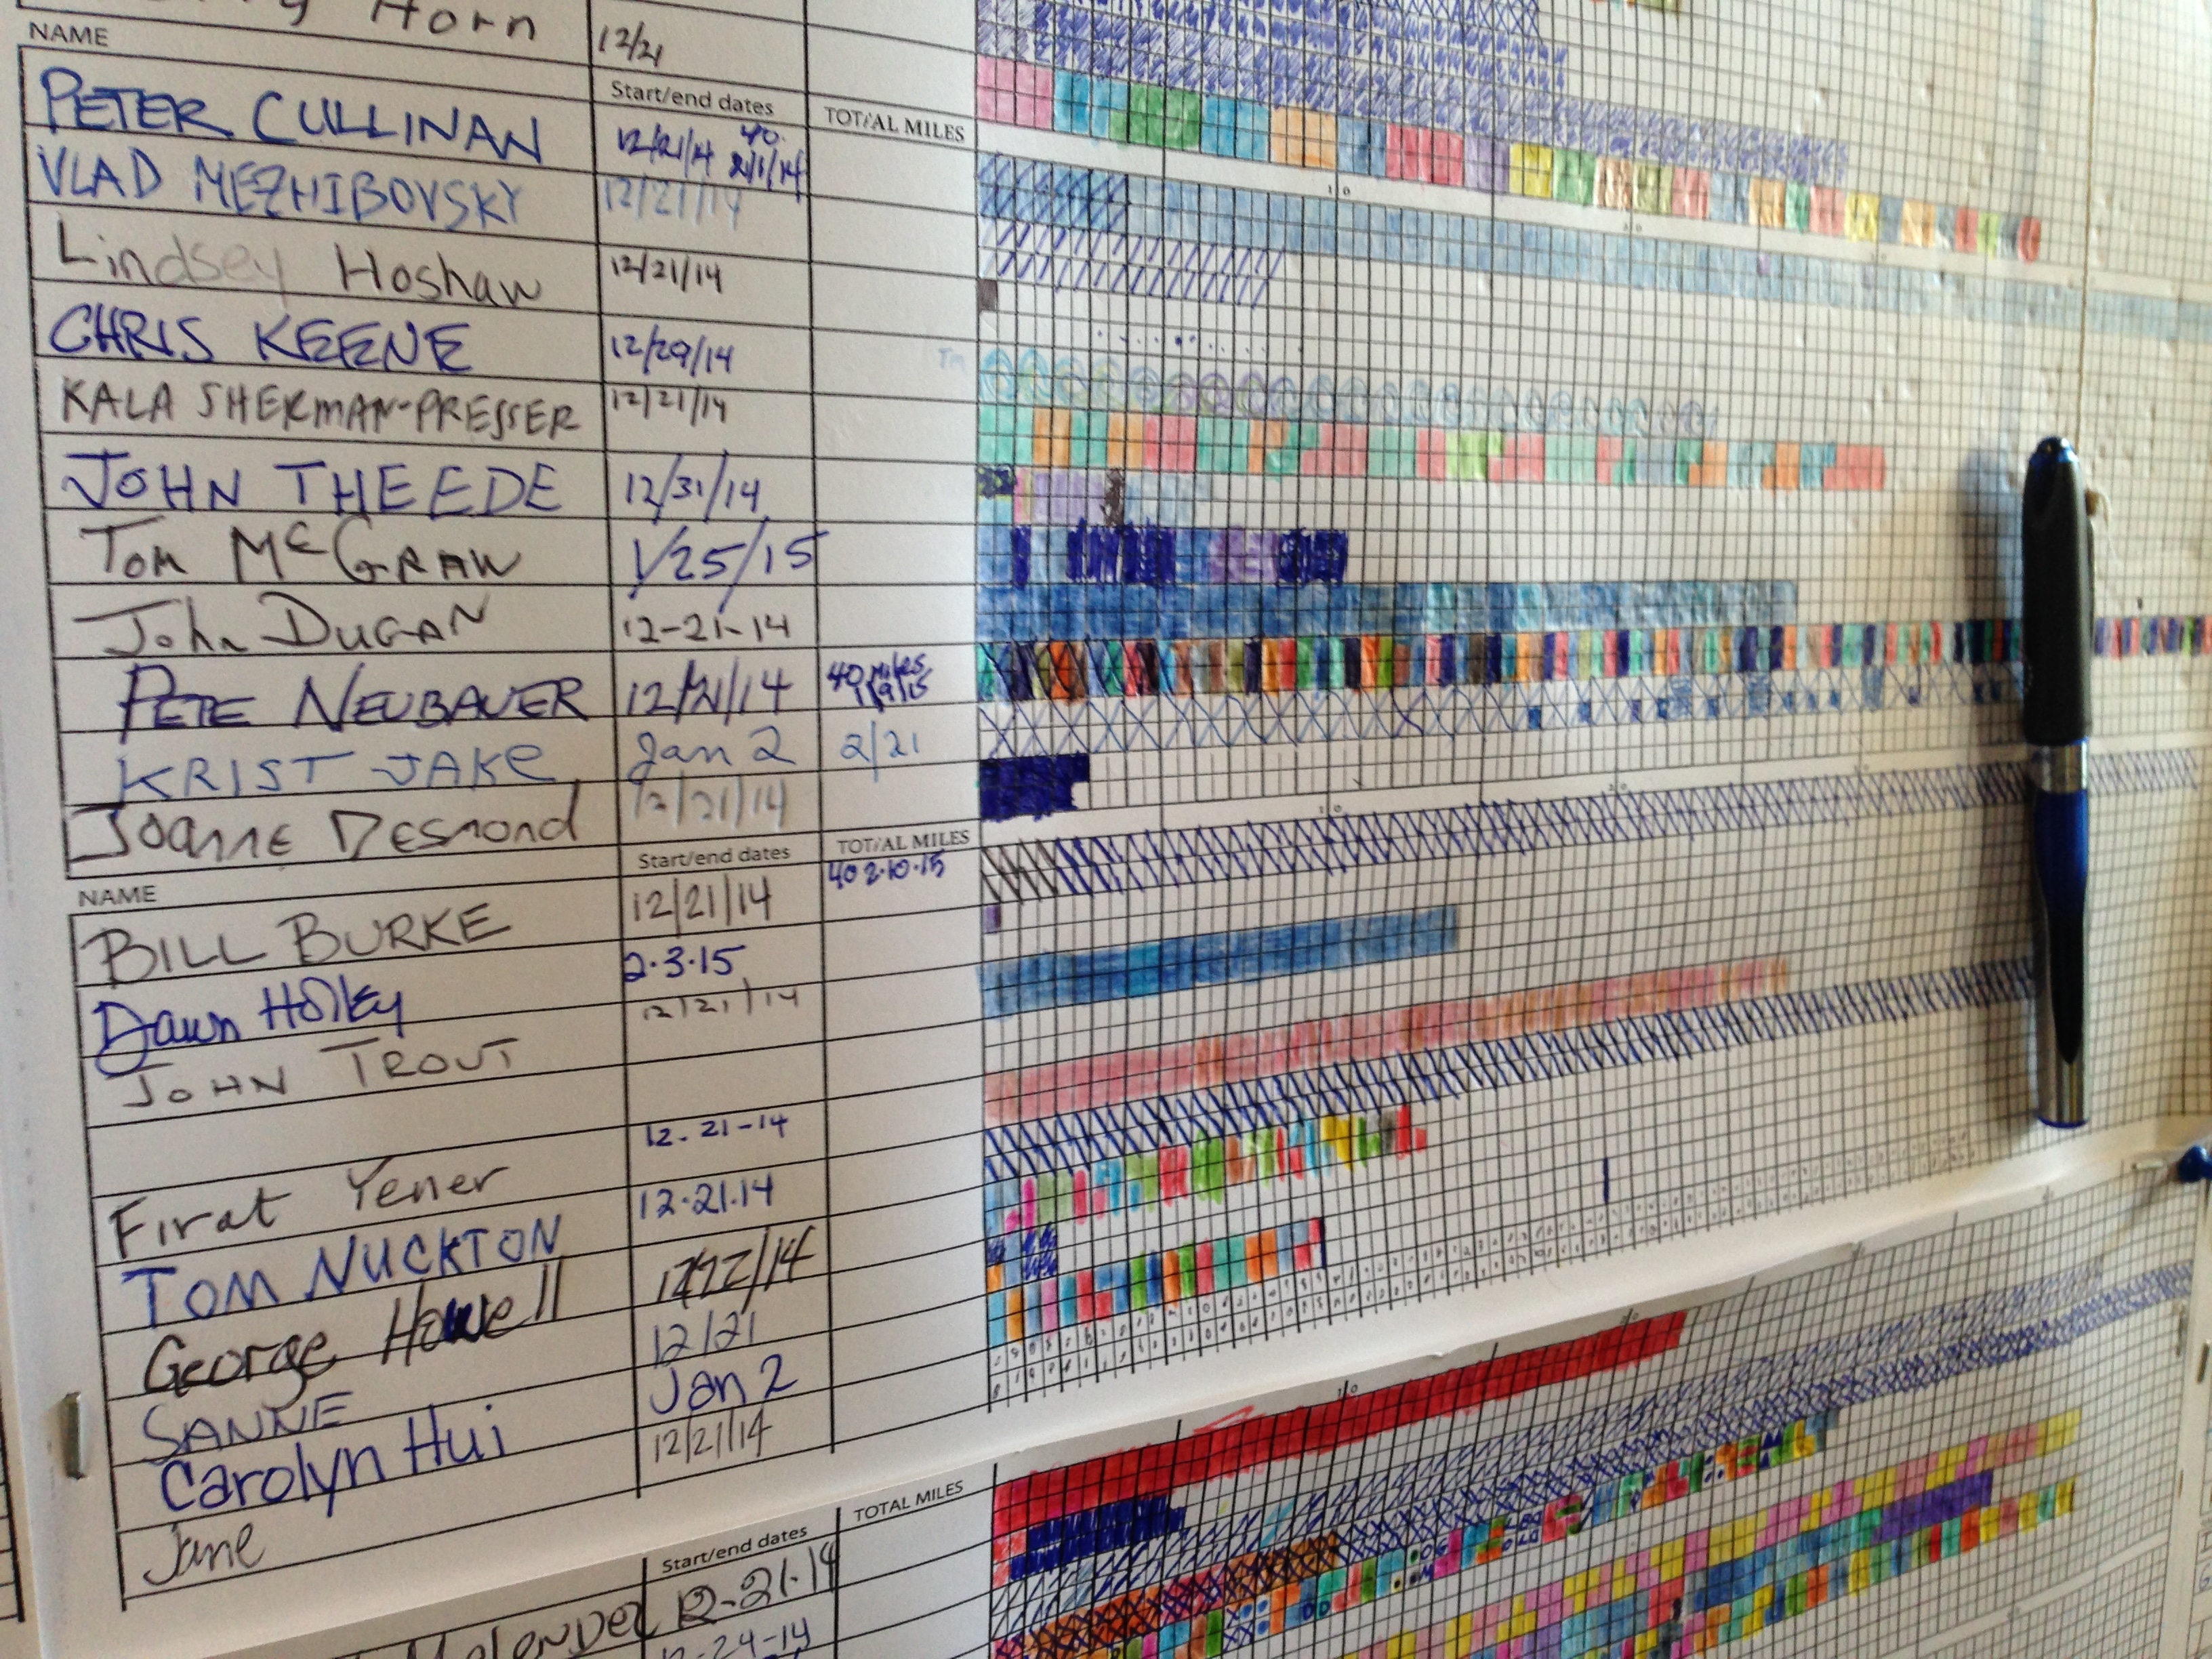 Horn 12/21
NAME Start/end dates TOTAL MILES
PETER CULLINAN 12/21/14 40 2/1/14
VLAD MEZHIBOVSKY 12/21/14
Lindsey Hoshaw 12/21/14
CHRIS KEENE 12/29/14
KALA SHERMAN-PRESSER 12/21/14
JOHN THEEDE 12/31/14
Tom McGRAW 1/25/15
John DUGAN 12-21-14
PETE NEUBAUER 12/21/14 40 miles 1/9/15
KRIST JAKE Jan 2 2/21
Joanne Desmond 12/21/14
NAME Start/end dates TOTAL MILES
BILL BURKE 12/21/14 40 2.10.15
Dawn Holley 2.3.15
JOHN TROUT 12/21/14
Firat Yener 12-21-14
TOM NUCKTON 12.21.14
George Howell
SANNE 12/21
Carolyn Hui Jan 2
Jane 12/21/14
Start/end dates TOTAL MILES
12-21-14
12-24-14
10
20
10
20
10
20